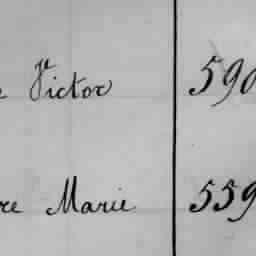 Victor 590
Marie 559